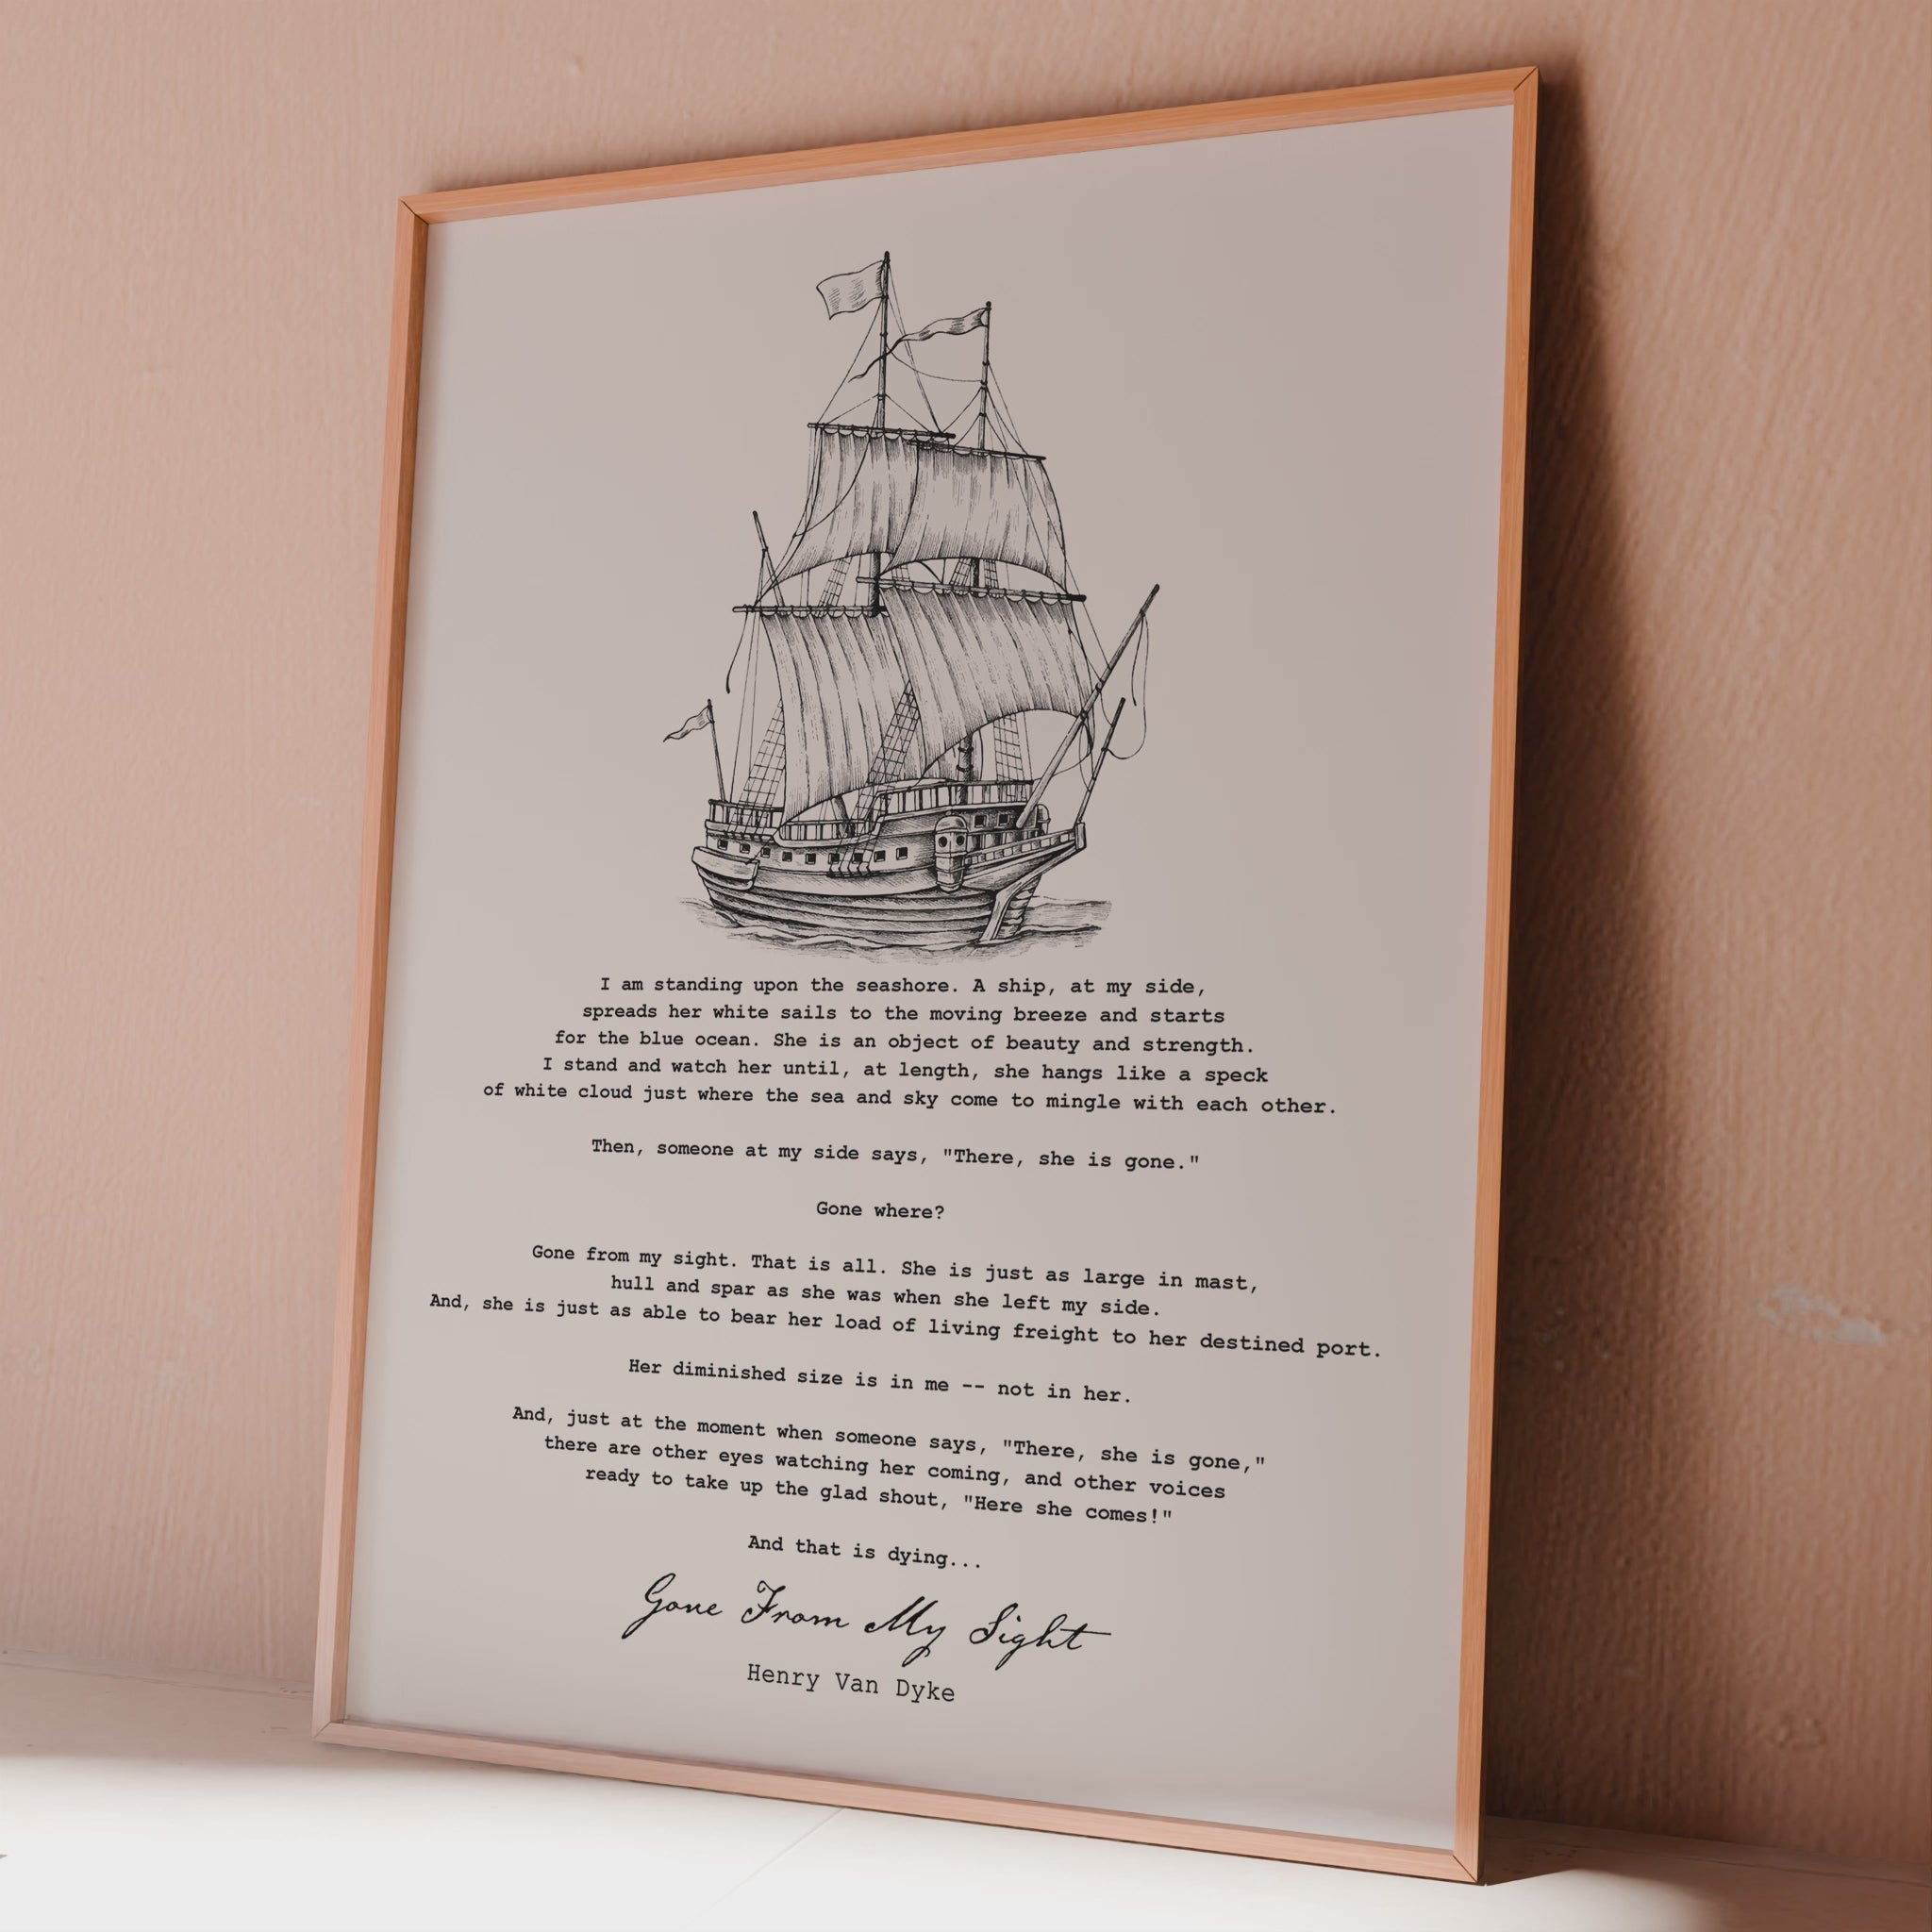 I am standing upon the seashore. A ship, at my side,
spreads her white sails to the moving breeze and starts
for the blue ocean. She is an object of beauty and strength.
I stand and watch her until, at length, she hangs like a speck
of white cloud just where the sea and sky come to mingle with each other.
Then, someone at my side says, "There, she is gone."
Gone where?
Gone from my sight. That is all. She is just as large in mast,
hull and spar as she was when she left my side.
And, she is just as able to bear her load of living freight to her destined port.
Her diminished size is in me -- not in her.
And, just at the moment when someone says, "There, she is gone,"
there are other eyes watching her coming, and other voices
ready to take up the glad shout, "Here she comes!"
And that is dying...
Gone From My Sight
Henry Van Dyke